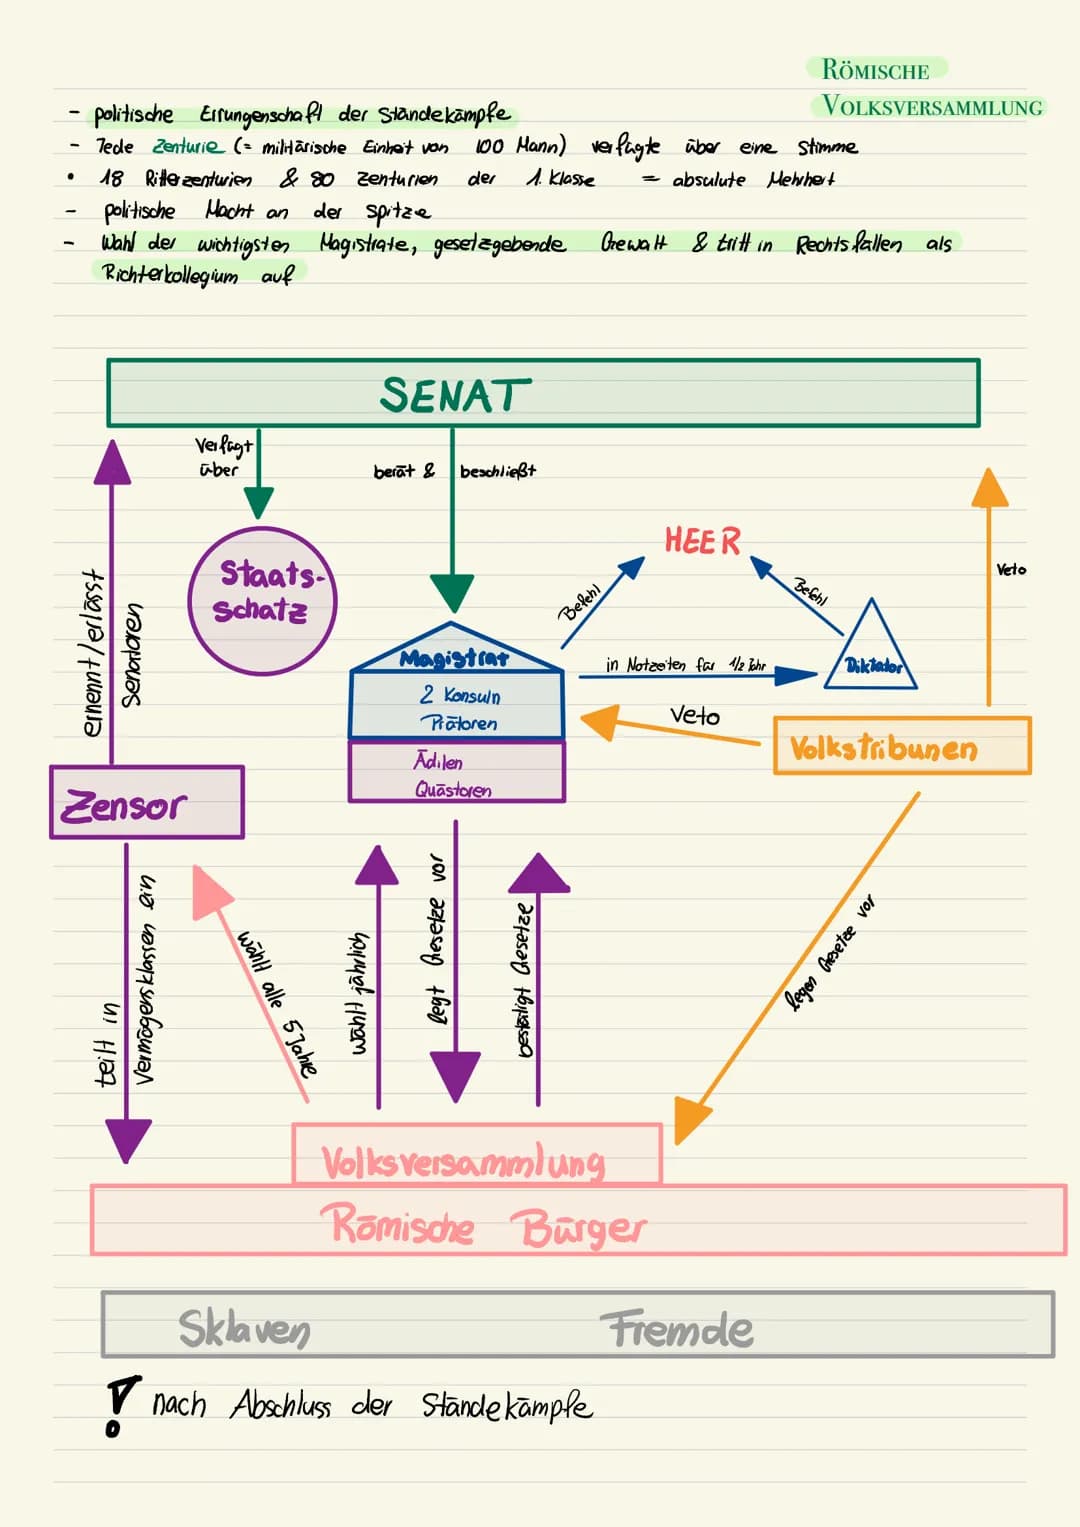 RÖMISCHE
VOLKSVERSAMMLUNG
- politische Errungenschaft der Ständekämpfe
- Jede Zenturie (= militärische Einheit von 100 Mann) verfügte über eine Stimme
• 18 Ritterzenturien & 80 Zenturien der 1. Klasse = absulute Mehrheit
- politische Macht an der Spitze
- Wahl der wichtigsten Magistrate, gesetzgebende Gewalt & tritt in Rechtsfällen als
Richterkollegium auf
SENAT
Verfügt
über
berät & beschließt
ernennt/erlässt
Senatoren
Staats-
schatz
HEER
Befehl
Befehl
Veto
Magistrat
2 Konsuln
Prätoren
Ädilen
Quästoren
in Notzeiten für 1/2 Jahr
Diktator
Veto
Volkstribunen
Zensor
teilt in
Vermögensklassen ein
wählt alle 5 Jahre
wählt jährlich
legt Gesetze vor
bestätigt Gesetze
legen Gesetze vor
Volksversammlung
Römische Bürger
Sklaven Fremde
! nach Abschluss der Ständekämpfe